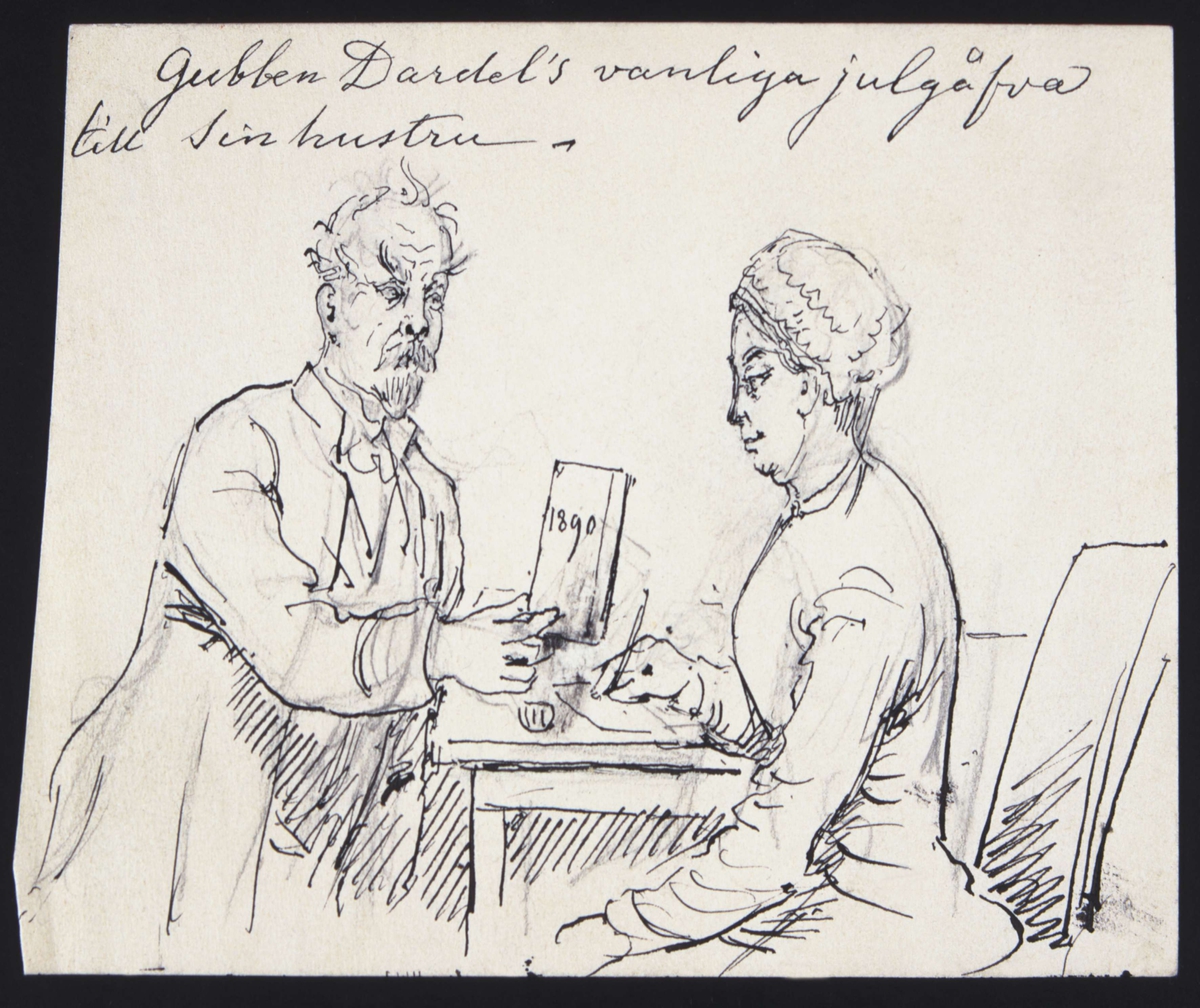 Gubben Dardel's vanliga julgåfva
till sin hustru –
1890